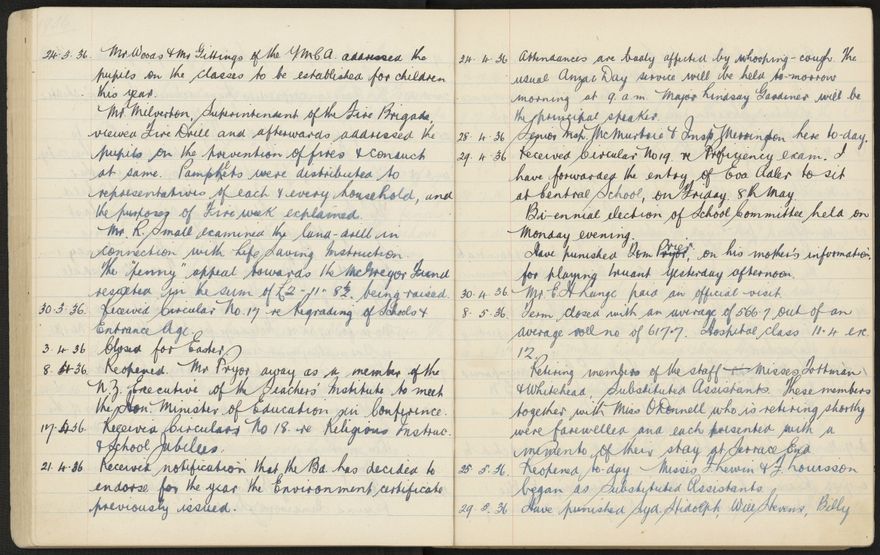 24.3.36. Mr Woods & Mr Gittings of the YMCA. addressed the
pupils on the classes to be established for children
this year.
Mr. Milverton, Superintendent of the Fire Brigade,
viewed Fire Drill and afterwards addressed the
pupils on the prevention of fires & conduct
at same. Pamphlets were distributed to
representatives of each & every household, and
the purposes of Fire week explained.
Mr. R. Small examined the land-drill in
connection with Life Saving Instruction.
The "Penny" appeal towards the McGregor Fund
resulted in the sum of £2-11-8½ being raised.
30.3.36. Received Circular No. 17 re Regrading of Schools &
Entrance Age.
3.4.36 Closed for Easter.
8.4.36 Reopened. Mr Pryor away as a member of the
N.Z. Executive of the Teachers' Institute to meet
the Hon. Minister of Education in Conference.
17.4.36 Received Circulars No 18. re Religious Instruc.
& School Jubilees.
21.4.36 Received notification that the Bd. has decided to
endorse for the year the Environment certificate
previously issued.
24.4.36 Attendances are badly affected by whooping-cough. The
usual Anzac Day service will be held to-morrow
morning at 9. a.m. Major Lindsay Gardiner will be
the principal speaker.
28.4.36 Senior Insp. McMurtrie & Insp. Merrington here to-day.
29.4.36 Received Circular No 19. re Proficiency exam. I
have forwarded the entry of Eva Adler to sit
at Central School, on Friday 8th May.
Bi-ennial election of School Committee held on
Monday evening.
Have punished Tom Prier, on his mother's information,
for playing truant yesterday afternoon.
30.4.36 Mr. E. H Lange paid an official visit
8.5.36 Term closed with an average of 566.7 out of an
average roll no of 617.7. Hospital class 11.4 ex.
12.
Retiring members of the staff Misses
& Whitehead, Substituted Assistants. These members
together with Miss O'Connell who is retiring shortly
were farewelled and each presented with a
memento of their stay at Terrace End
25.5.36 Reopened to-day. Misses &
began as Substituted Assistants.
29.5.36 Have punished Syd. Will Stevens, Billy